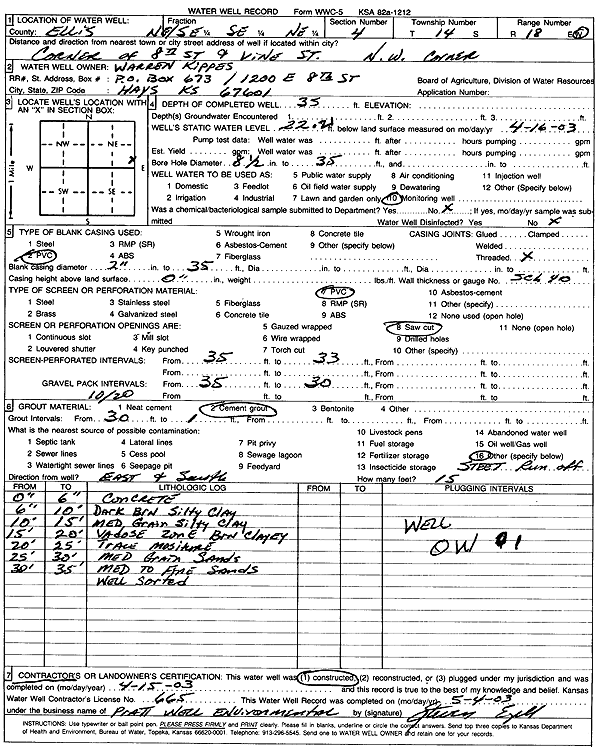 WATER WELL RECORD Form WWC-5 KSA 82a-1212
1 LOCATION OF WATER WELL: Fraction Section Number Township Number Range Number
County: Ellis NE/SE ¼ SE ¼ NE ¼ 4 T 14 S R 18 E/W
Distance and direction from nearest town or city street address of well if located within city?
Corner of 8th St & Vine St. N.W. Corner
2 WATER WELL OWNER: Warren Kippes
RR#, St. Address, Box # : P.O. Box 673 / 1200 E 8th St Board of Agriculture, Division of Water Resources
City, State, ZIP Code : Hays KS 67601 Application Number:
3 LOCATE WELL'S LOCATION WITH AN "X" IN SECTION BOX:
N
NW NE
W E
X
SW SE
S
1 Mile
4 DEPTH OF COMPLETED WELL 35 ft. ELEVATION:
Depth(s) Groundwater Encountered 1. ft. 2. ft. 3. ft.
WELL'S STATIC WATER LEVEL 22.21 ft. below land surface measured on mo/day/yr 4-16-03
Pump test data: Well water was ft. after hours pumping gpm
Est. Yield gpm: Well water was ft. after hours pumping gpm
Bore Hole Diameter 8 1/2 in. to 35 ft., and in. to ft.
WELL WATER TO BE USED AS: 5 Public water supply 8 Air conditioning 11 Injection well
1 Domestic 3 Feedlot 6 Oil field water supply 9 Dewatering 12 Other (Specify below)
2 Irrigation 4 Industrial 7 Lawn and garden only 10 Monitoring well
Was a chemical/bacteriological sample submitted to Department? Yes No X ; If yes, mo/day/yr sample was submitted
Water Well Disinfected? Yes No X
5 TYPE OF BLANK CASING USED: 5 Wrought iron 8 Concrete tile CASING JOINTS: Glued Clamped
1 Steel 3 RMP (SR) 6 Asbestos-Cement 9 Other (specify below) Welded
2 PVC 4 ABS 7 Fiberglass Threaded X
Blank casing diameter 2" in. to 35 ft., Dia in. to ft., Dia in. to ft.
Casing height above land surface 0" in., weight lbs./ft. Wall thickness or gauge No. Sch 40
TYPE OF SCREEN OR PERFORATION MATERIAL: 7 PVC 10 Asbestos-cement
1 Steel 3 Stainless steel 5 Fiberglass 8 RMP (SR) 11 Other (specify)
2 Brass 4 Galvanized steel 6 Concrete tile 9 ABS 12 None used (open hole)
SCREEN OR PERFORATION OPENINGS ARE: 5 Gauzed wrapped 8 Saw cut 11 None (open hole)
1 Continuous slot 3 Mill slot 6 Wire wrapped 9 Drilled holes
2 Louvered shutter 4 Key punched 7 Torch cut 10 Other (specify)
SCREEN-PERFORATED INTERVALS: From 35 ft. to 33 ft., From ft. to ft.
From ft. to ft., From ft. to ft.
GRAVEL PACK INTERVALS: From 35 ft. to 30 ft., From ft. to ft.
10/20 From ft. to ft., From ft. to ft.
6 GROUT MATERIAL: 1 Neat cement 2 Cement grout 3 Bentonite 4 Other
Grout Intervals: From 30 ft. to 1 ft., From ft. to ft., From ft. to ft.
What is the nearest source of possible contamination: 10 Livestock pens 14 Abandoned water well
1 Septic tank 4 Lateral lines 7 Pit privy 11 Fuel storage 15 Oil well/Gas well
2 Sewer lines 5 Cess pool 8 Sewage lagoon 12 Fertilizer storage 16 Other (specify below)
3 Watertight sewer lines 6 Seepage pit 9 Feedyard 13 Insecticide storage Street Run off
Direction from well? East & South How many feet? 15
FROM TO LITHOLOGIC LOG FROM TO PLUGGING INTERVALS
0" 6" Concrete
6" 10' Dark Brn Silty Clay
10' 15' Med Grain Silty Clay
15' 20' Vadose Zone Brn Clayey
20' 25' Trace Moisture
25' 30' Med Grain Sands
30' 35' Med to Fine Sands
Well Sorted
Well
OW #1
7 CONTRACTOR'S OR LANDOWNER'S CERTIFICATION: This water well was (1) constructed, (2) reconstructed, or (3) plugged under my jurisdiction and was
completed on (mo/day/year) 4-15-03 and this record is true to the best of my knowledge and belief. Kansas
Water Well Contractor's License No. 665 This Water Well Record was completed on (mo/day/yr) 5-4-03
under the business name of Pratt Well Environmental by (signature)
INSTRUCTIONS: Use typewriter or ball point pen. PLEASE PRESS FIRMLY and PRINT clearly. Please fill in blanks, underline or circle the correct answers. Send top three copies to Kansas Department
of Health and Environment, Bureau of Water, Topeka, Kansas 66620-0001. Telephone: 913-296-5545. Send one to WATER WELL OWNER and retain one for your records.